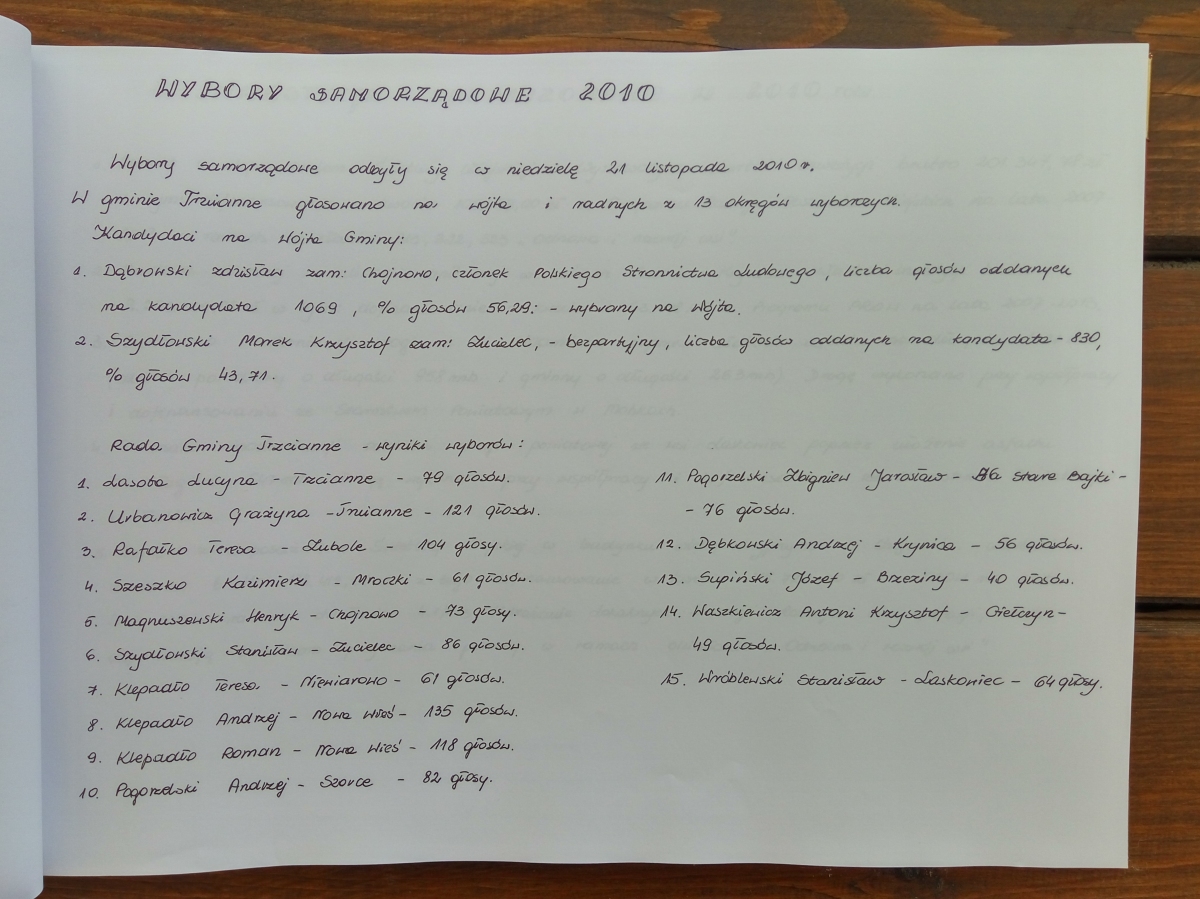 WYBORY SAMORZĄDOWE 2010
Wybory samorządowe odbyły się w niedzielę 21 listopada 2010 r.
W gminie Trzcianne głosowano na wójta i radnych z 13 okręgów wyborczych.
Kandydaci na Wójta Gminy:
1. Dąbrowski Zdzisław zam: Chojnowo, członek Polskiego Stronnictwa Ludowego, liczba głosów oddanych
na kandydata 1069, % głosów 56,29: - wybrany na Wójta.
2. Szydłowski Marek Krzysztof zam: Zucielec, - bezpartyjny, liczba głosów oddanych na kandydata - 830,
% głosów 43,71.
Rada Gminy Trzcianne - wyniki wyborów:
1. Lasota Lucyna - Trzcianne - 79 głosów.
2. Urbanowicz Grażyna - Trzcianne - 121 głosów.
3. Rafałko Teresa - Zubole - 104 głosy.
4. Szeszko Kazimierz - Mroczki - 61 głosów.
5. Magnuszewski Henryk - Chojnowo - 73 głosy.
6. Szydłowski Stanisław - Zucielec - 86 głosów.
7. Klepadło Teresa - Niewiarowo - 61 głosów.
8. Klepadło Andrzej - Nowa Wieś - 135 głosów.
9. Klepadło Roman - Nowa Wieś - 118 głosów.
10. Pogorzelski Andrzej - Szorce - 82 głosy.
11. Pogorzelski Zbigniew Jarosław - Stare Bajki -
- 76 głosów.
12. Dębkowski Andrzej - Krynica - 56 głosów.
13. Supiński Józef - Brzeziny - 40 głosów.
14. Waszkiewicz Antoni Krzysztof - Giełczyn -
49 głosów.
15. Wróblewski Stanisław - Laskowiec - 64 głosy.